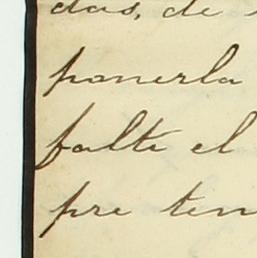 das, de
ponerla
falte el
pre ten